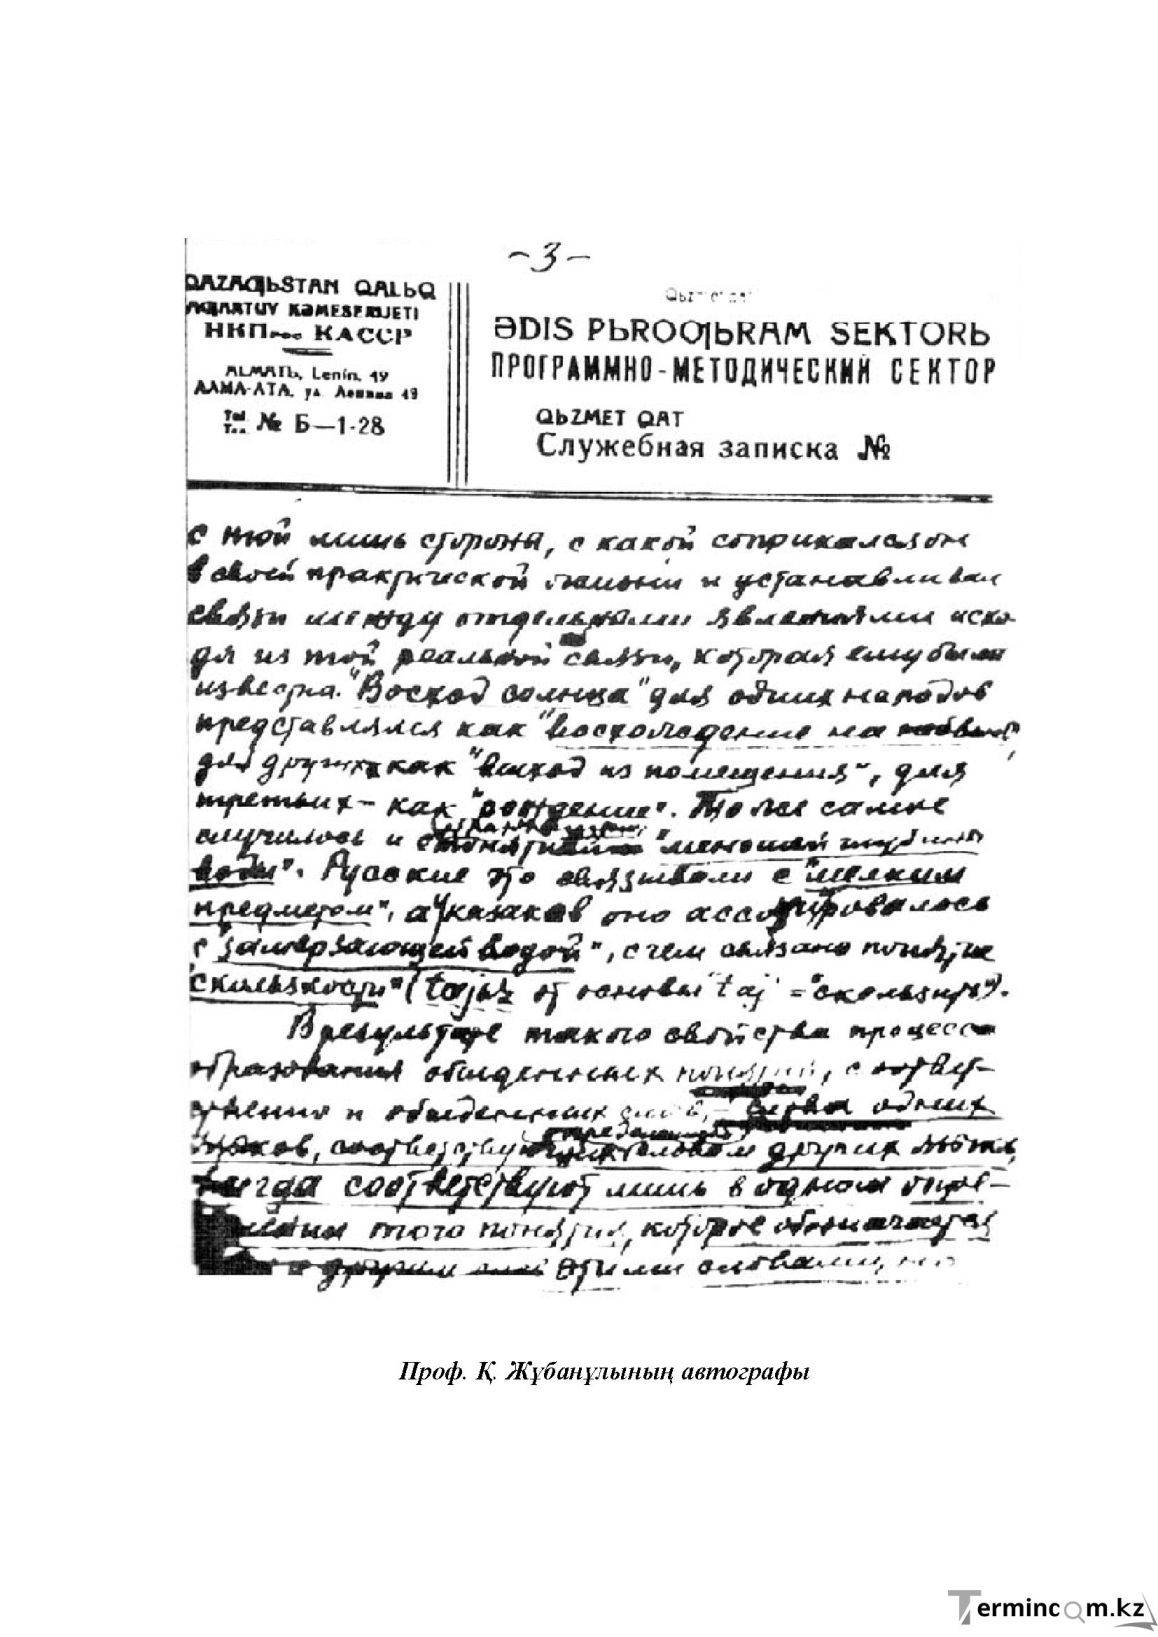 -3-
QAZAƢЬSTAN QALЬQ
AƢARTUV KƏMESERIJETI
НКПрос КАССР
ALMATЬ, Lenin, 49
АЛМА-АТА, ул. Ленина 49
Tel
Тел. № Б—1-28
QЬZMET QAT
ƏDIS PЬROƢЬRAM SEKTORЬ
ПРОГРАММНО-МЕТОДИЧЕСКИЙ СЕКТОР
QЬZMET QAT
Служебная записка №
с той лишь стороны, с какой соприкасался он
в своей практической жизни и устанавливал
связи между отдельными явлениями исхо-
дя из той реальной связи, которая ему была
известна. "Восход солнца" для одних народов
представлялся как "восхождение на
для других как "выход из помещения", для
третьих - как "рождение". То же самое
случилось и с "меньшей глубины
воды". Русские это связывали с "мелким
предметом", а у казаков оно ассоциировалось
с "замерзающей водой", с чем связано понятие
"скользкости" (tajьz от основы "taj" = "скользить").
В результате такого свойства процесса
образования обыденных понятий, соответ-
ственно и обыденных слов, - слова одних
языков, соответствующие определенным словам других языков,
всегда соответствуют лишь в одном
того понятия, которое обозначается
этими словами,
Проф. Қ. Жұбанұлының автографы
Termincom.kz